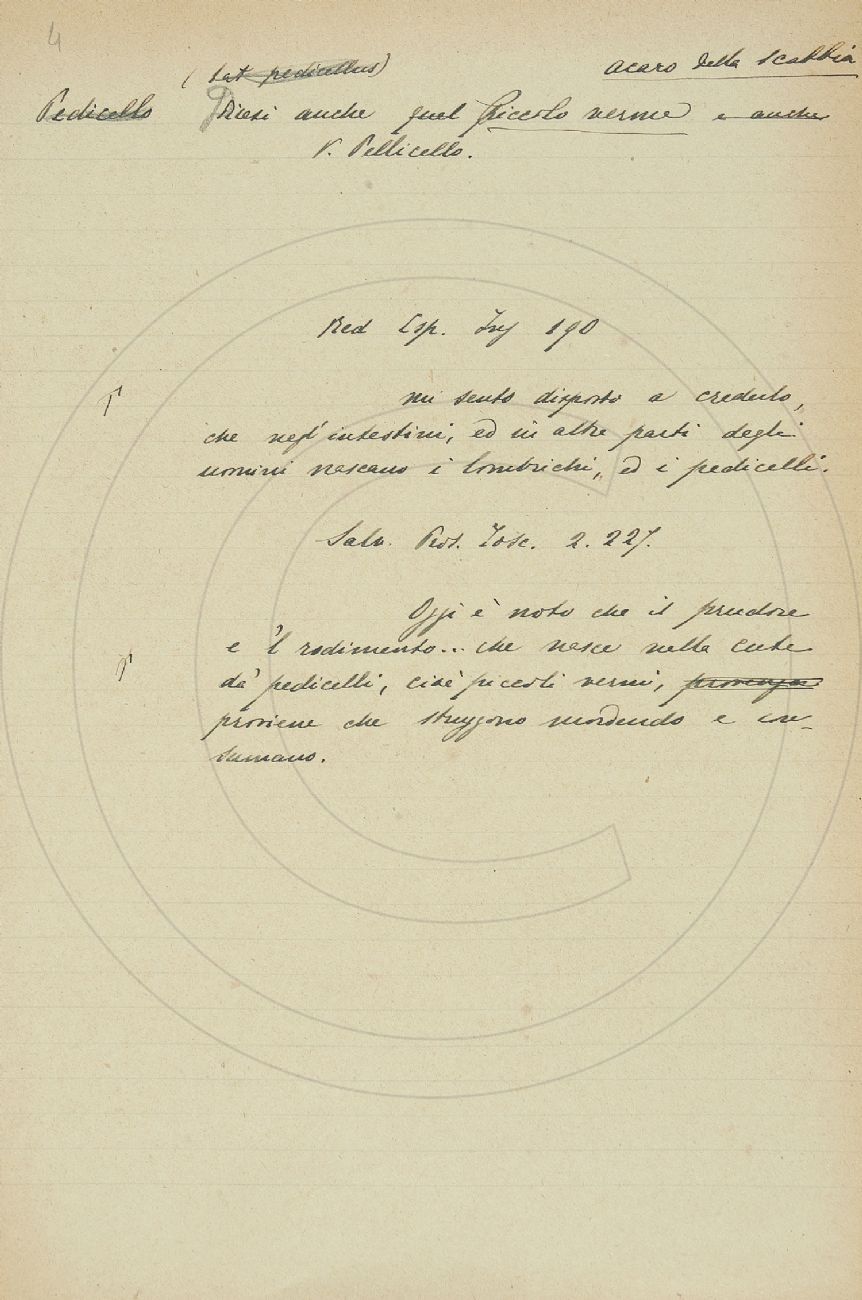 4
(Lat pedicellus) acaro della scabbia
Pedicello Dicesi anche quel piccolo verme e anche
V. Pellicello.
Red Esp. Ins 190
mi sento disposto a crederlo,
che negl'intestini, ed in altre parti degli
uomini nascano i lombrichi, ed i pedicelli.
Salv. Pros. Tosc. 2. 227.
Oggi è noto che il prudore
e 'l rodimento... che nasce nella cute
da' pedicelli, cioè piccoli vermi,
proviene che struggono mordendo e con-
sumano.